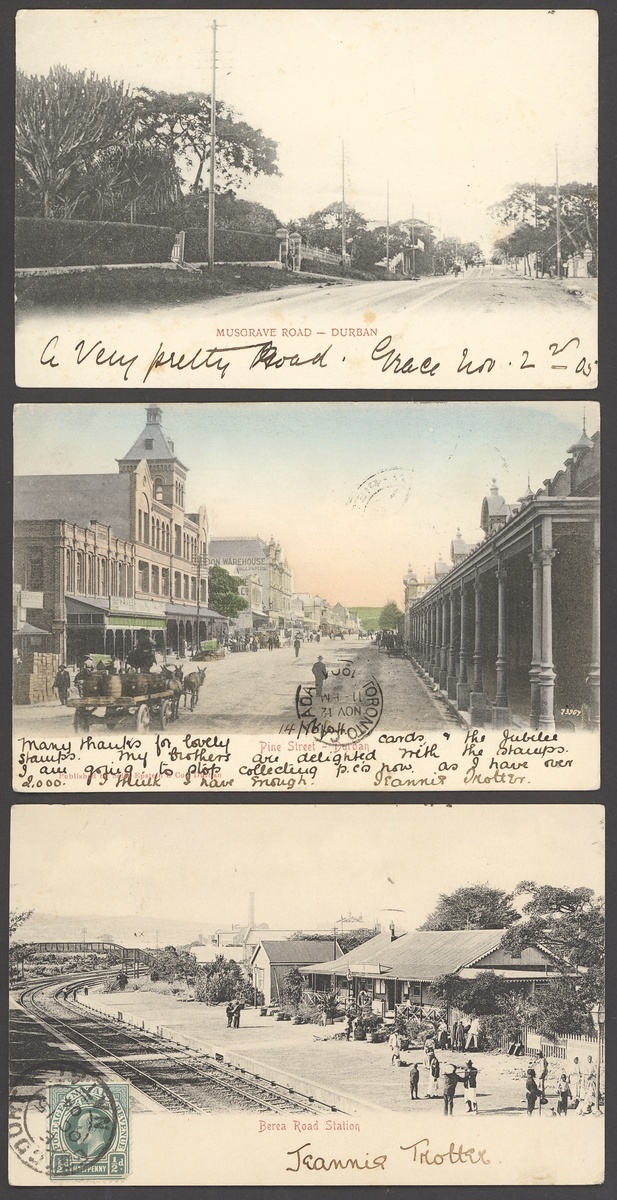 MUSGRAVE ROAD — DURBAN
A Very pretty Road. Grace Nov. 2nd 05
WAREHOUSE
TORONTO
CANADA
NOV 12
11 PM
73367
Pine Street - Durban
Many thanks for lovely cards, & the Jubilee
stamps. My brothers are delighted with the stamps.
Published by
I am going to stop collecting p.cs now as I have over
2,000. I think I have enough. Jeannie Trotter.
Berea Road Station
POSTAGE REVENUE
½ HALFPENNY ½d
Jeannie Trotter.